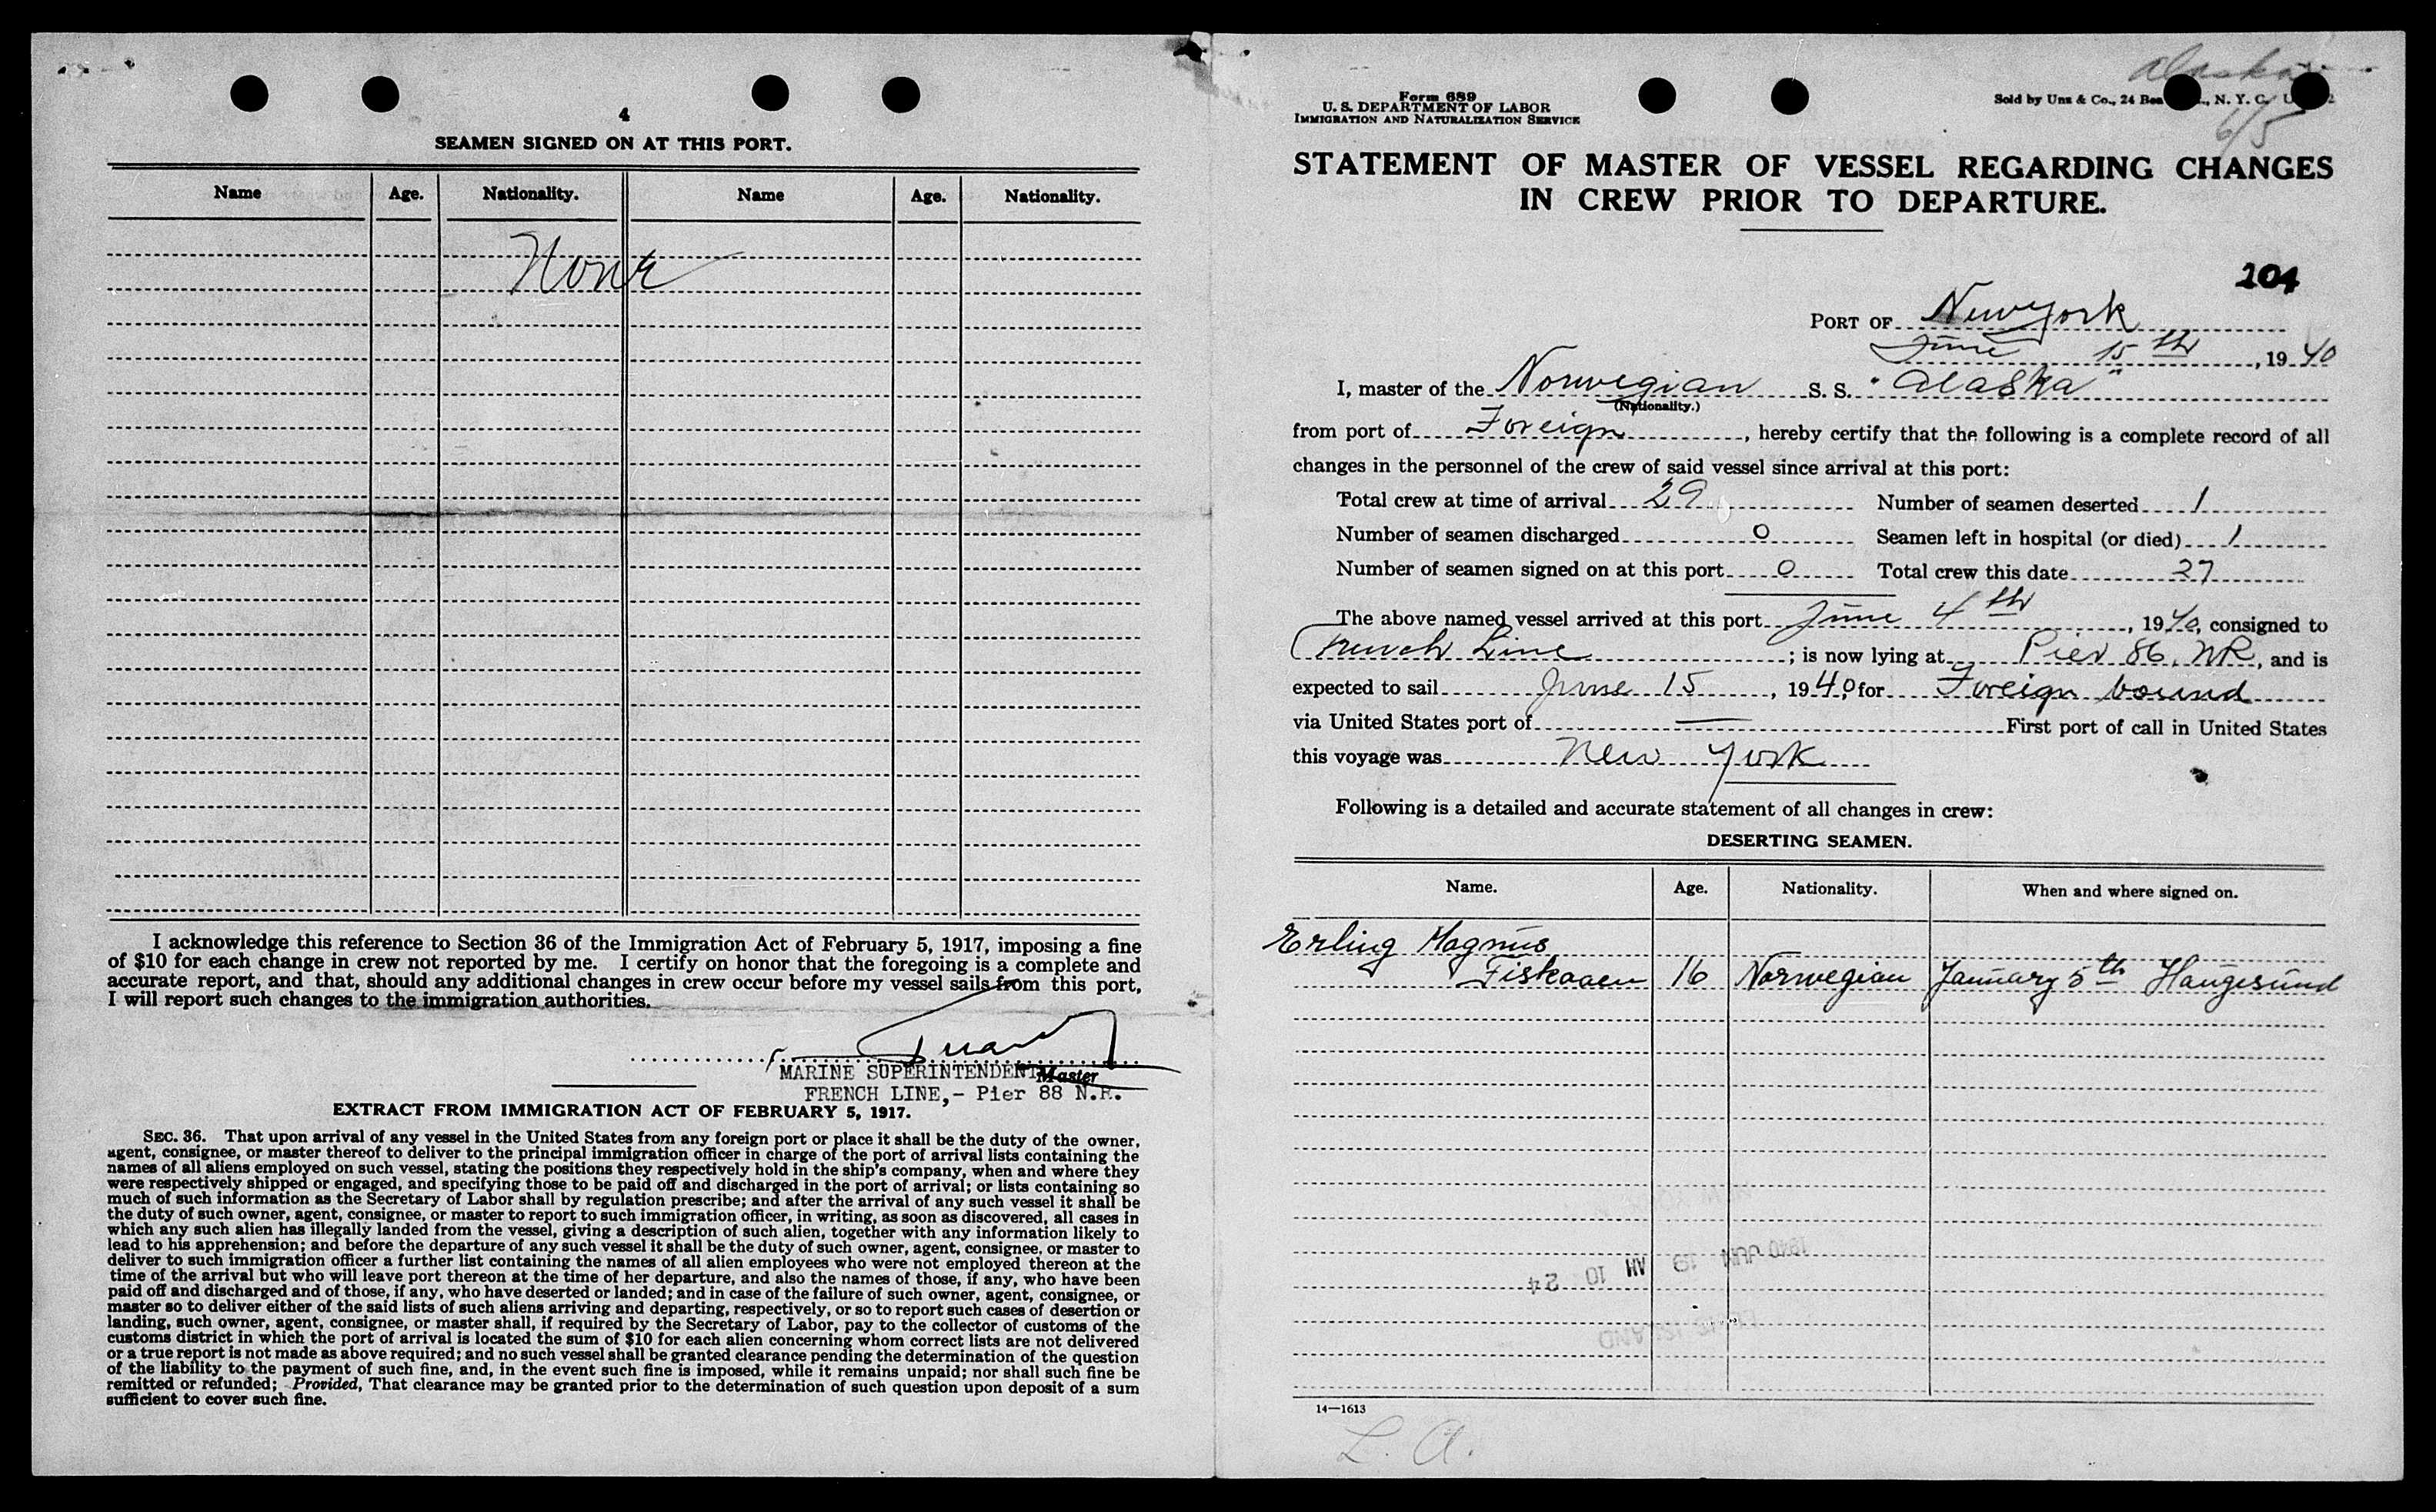 4
SEAMEN SIGNED ON AT THIS PORT.
Name Age. Nationality. Name Age. Nationality.
None
I acknowledge this reference to Section 36 of the Immigration Act of February 5, 1917, imposing a fine
of $10 for each change in crew not reported by me. I certify on honor that the foregoing is a complete and
accurate report, and that, should any additional changes in crew occur before my vessel sails from this port,
I will report such changes to the immigration authorities.
MARINE SUPERINTENDENT Master
FRENCH LINE,- Pier 88 N.R.
EXTRACT FROM IMMIGRATION ACT OF FEBRUARY 5, 1917.
SEC. 36. That upon arrival of any vessel in the United States from any foreign port or place it shall be the duty of the owner,
agent, consignee, or master thereof to deliver to the principal immigration officer in charge of the port of arrival lists containing the
names of all aliens employed on such vessel, stating the positions they respectively hold in the ship's company, when and where they
were respectively shipped or engaged, and specifying those to be paid off and discharged in the port of arrival; or lists containing so
much of such information as the Secretary of Labor shall by regulation prescribe; and after the arrival of any such vessel it shall be
the duty of such owner, agent, consignee, or master to report to such immigration officer, in writing, as soon as discovered, all cases in
which any such alien has illegally landed from the vessel, giving a description of such alien, together with any information likely to
lead to his apprehension; and before the departure of any such vessel it shall be the duty of such owner, agent, consignee, or master to
deliver to such immigration officer a further list containing the names of all alien employees who were not employed thereon at the
time of the arrival but who will leave port thereon at the time of her departure, and also the names of those, if any, who have been
paid off and discharged and of those, if any, who have deserted or landed; and in case of the failure of such owner, agent, consignee, or
master so to deliver either of the said lists of such aliens arriving and departing, respectively, or so to report such cases of desertion or
landing, such owner, agent, consignee, or master shall, if required by the Secretary of Labor, pay to the collector of customs of the
customs district in which the port of arrival is located the sum of $10 for each alien concerning whom correct lists are not delivered
or a true report is not made as above required; and no such vessel shall be granted clearance pending the determination of the question
of the liability to the payment of such fine, and, in the event such fine is imposed, while it remains unpaid; nor shall such fine be
remitted or refunded; Provided, That clearance may be granted prior to the determination of such question upon deposit of a sum
sufficient to cover such fine.
Alaska
6/5
Form 689
U. S. DEPARTMENT OF LABOR
IMMIGRATION AND NATURALIZATION SERVICE
Sold by Unz & Co., 24 N. Y. C.
STATEMENT OF MASTER OF VESSEL REGARDING CHANGES
IN CREW PRIOR TO DEPARTURE.
204
PORT OF New York
June 15th, 1940
I, master of the Norwegian S. S. "Alaska"
(Nationality.)
from port of Foreign, hereby certify that the following is a complete record of all
changes in the personnel of the crew of said vessel since arrival at this port:
Total crew at time of arrival 29 Number of seamen deserted 1
Number of seamen discharged 0 Seamen left in hospital (or died) 1
Number of seamen signed on at this port 0 Total crew this date 27
The above named vessel arrived at this port June 4th, 1940, consigned to
French Line; is now lying at Pier 86, NR, and is
expected to sail June 15, 1940, for Foreign bound
via United States port of — First port of call in United States
this voyage was New York
Following is a detailed and accurate statement of all changes in crew:
DESERTING SEAMEN.
Name. Age. Nationality. When and where signed on.
Erling Magnus
Fiskaaen 16 Norwegian January 5th Haugesund
1940 JUN 19 AM 10 24
14—1613
L. A.